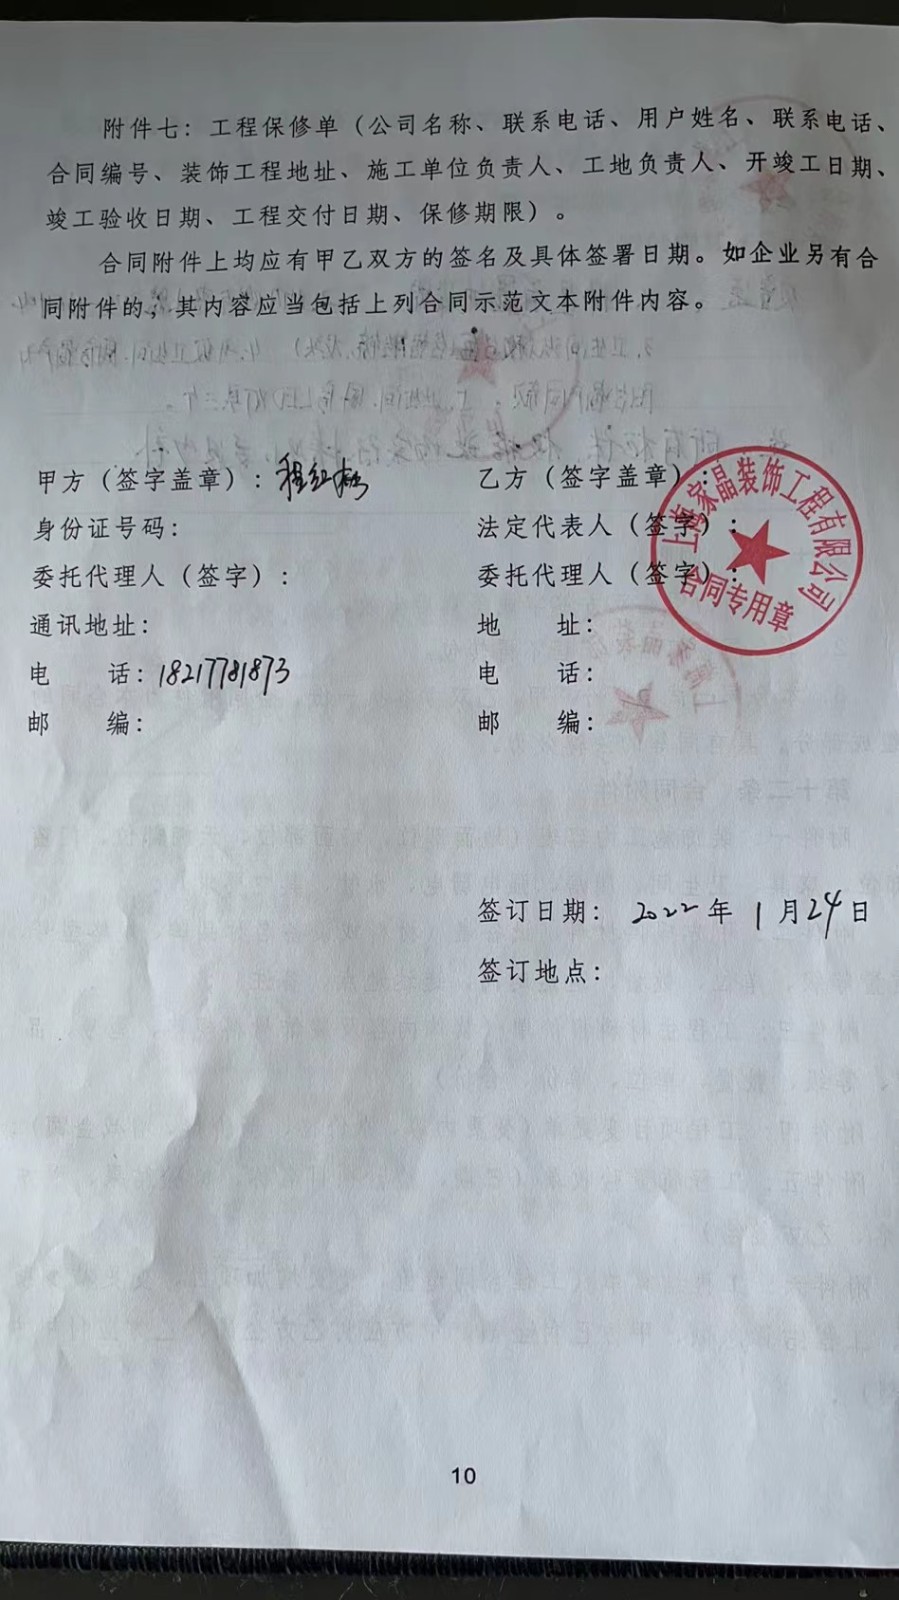 附件七：工程保修单（公司名称、联系电话、用户姓名、联系电话、
合同编号、装饰工程地址、施工单位负责人、工地负责人、开竣工日期、
竣工验收日期、工程交付日期、保修期限）。
合同附件上均应有甲乙双方的签名及具体签署日期。如企业另有合
同附件的，其内容应当包括上列合同示范文本附件内容。
甲方（签字盖章）：程红梅
身份证号码：
委托代理人（签字）：
通讯地址：
电 话：18217781873
邮 编：
乙方（签字盖章）：
法定代表人（签字）：
委托代理人（签字）：
地 址：
电 话：
邮 编：
上海家晶装饰工程有限公司
合同专用章
签订日期： 2022 年 1 月 24 日
签订地点：
10